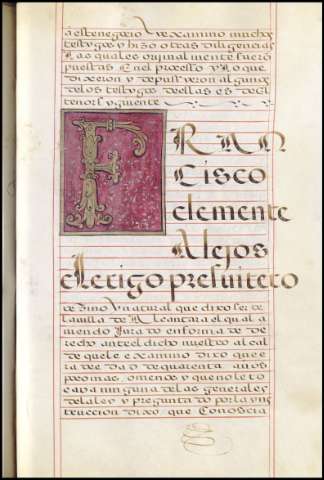 a este negoçio ✓ examino muchos
testigos y hizo otras diligençias
Las quales originalmente fuero
puestas En el proçesso y Lo que
dixeron y depussieron algunos
de los testigos dellas es del
tenor siguiente
FRAN
Cisco
clemente
Alejos
clerigo presuitero
vezino y natural que dixo ser de
la villa de Alcantara el qual a
uiendo Jurado en forma de de
recho ante el dicho nuestro alcal
de que le examino dixo que e
ra de edad de quarenta años
poco mas, o menos y que no le to
caua ninguna de las generales
de la ley y preguntado por la yns
truccion dixo, que Conoscia